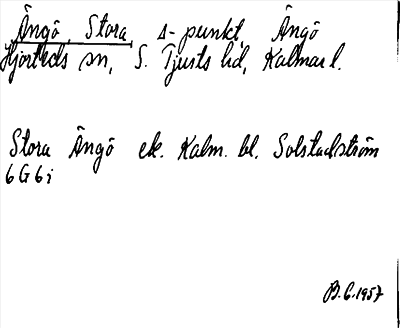 Ängö, Stora, s-punkt, Ängö
Hjorteds sn, S. Tjusts hd, Kalmar l.
Stora Ängö ek. Kalm. bl. Solstadström
6G6i
B.C.1957